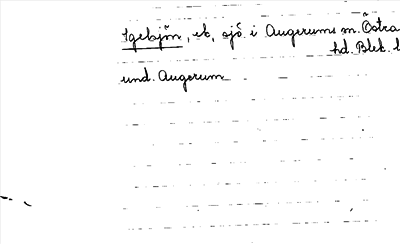 Igelsjön, et, sjö i Augerums m. Östra
hd. Blek. l
und. Augerum